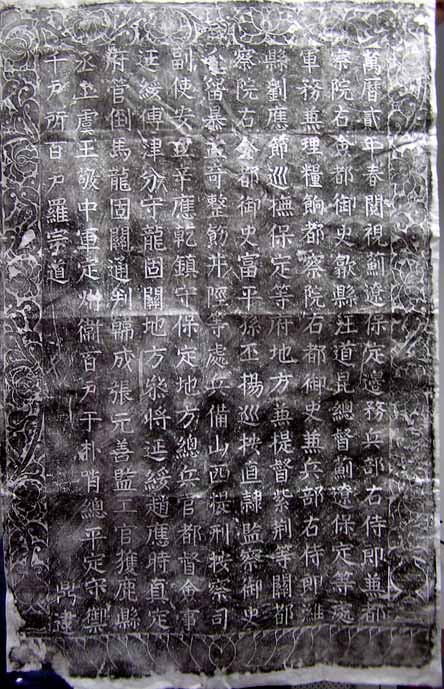 萬曆貳年春閱視薊遼保定邊務兵部右侍郎兼都
察院右僉都御史歙縣汪道昆總督薊遼保定等處
軍務兼理糧餉都察院右都御史兼兵部右侍郎濰
縣劉應節巡撫保定等府地方兼提督紫荊等關都
察院右僉都御史富平孫丕揚巡按直隸監察御史
屯留暴孟奇整飭井陘等處兵備山西提刑按察司
副使安丘辛應乾鎮守保定地方總兵官都督僉事
延綏傅津分守龍固關地方參將延綏趙應時真定
府管倒馬龍固關通判 成張元善監工官獲鹿縣
丞上虞王 中軍定州衛百户于朴哨總平定守禦
千户所百户羅宗道 鼎建